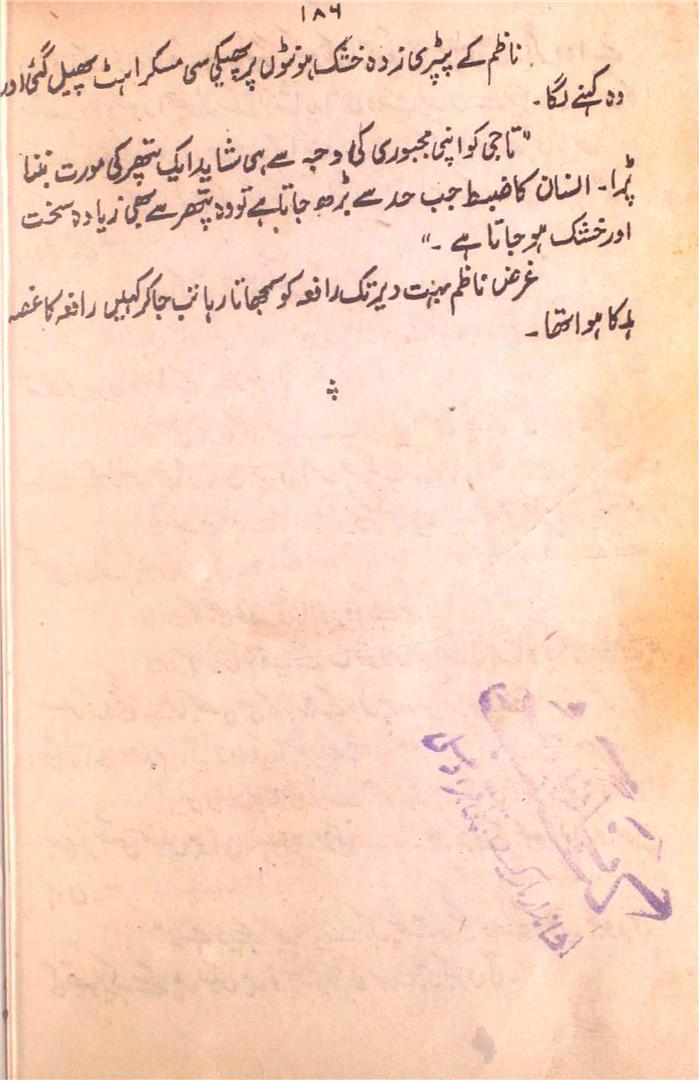 ۱۸۶
ناظم کے پپڑی زدہ خشک ہونٹوں پر پھیکی سی مسکراہٹ پھیل گئی اور
وہ کہنے لگا۔
"تاجی کو اپنی مجبوری کی وجہ سے ہی شاید ایک پتھر کی مورت بننا
پڑا۔ انسان کا ضبط جب حد سے بڑھ جاتا ہے تو وہ پتھر سے بھی زیادہ سخت
اور خشک ہو جاتا ہے۔"
غرض ناظم بہت دیر تک رافعہ کو سمجھاتا رہا تب جا کر کہیں رافعہ کا غصہ
ہلکا ہوا تھا۔